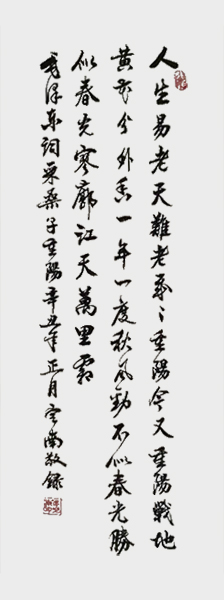 人生易老天難老歲〻重陽今又重陽戰地
黄花分外香一年一度秋風勁不似春光勝
似春光寥廓江天萬里霜
毛澤東詞采桑子重陽辛丑年正月南敬録